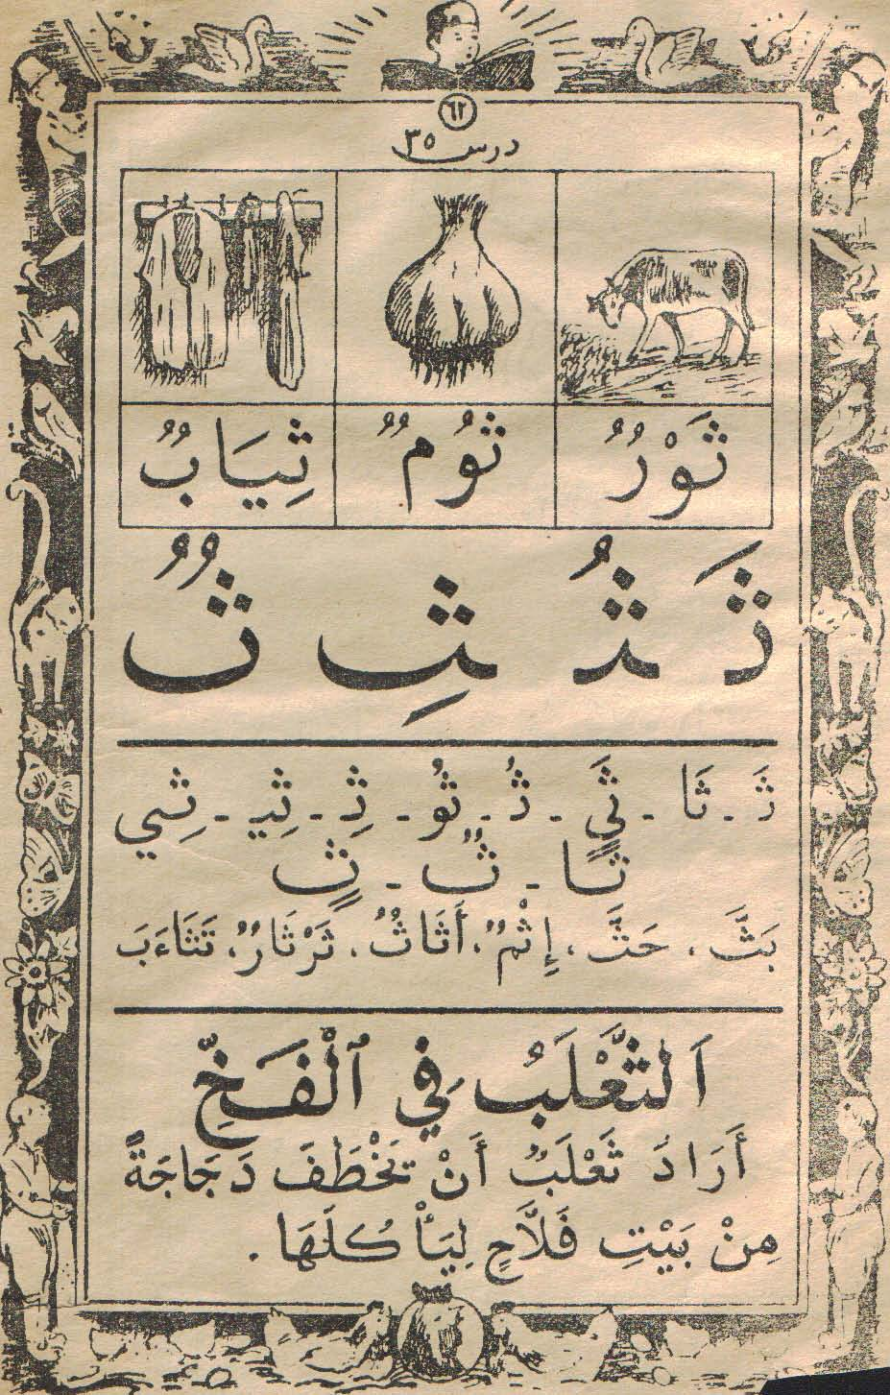 ٦٢
درس ٣٥
ثَوْرٌ ثُومٌ ثِيَابٌ
ثَـ ـثُـ ـثِ ثٌ
ثَـ - ثَا - ثًى - ثُـ - ثُو - ثِـ - ثِيـ - ثِي
ثًا - ثٌ - ثٍ
بَثَّ ، حَثَّ ، إِثْمٌ ، أَثَاثٌ ، ثَرْثَارٌ ، تَثَاءَبَ
اَلثَّعْلَبُ فِي ٱلْفَخِّ
أَرَادَ ثَعْلَبٌ أَنْ يَخْطَفَ دَجَاجَةً
مِنْ بَيْتِ فَلَّاحٍ لِيَأْكُلَهَا .